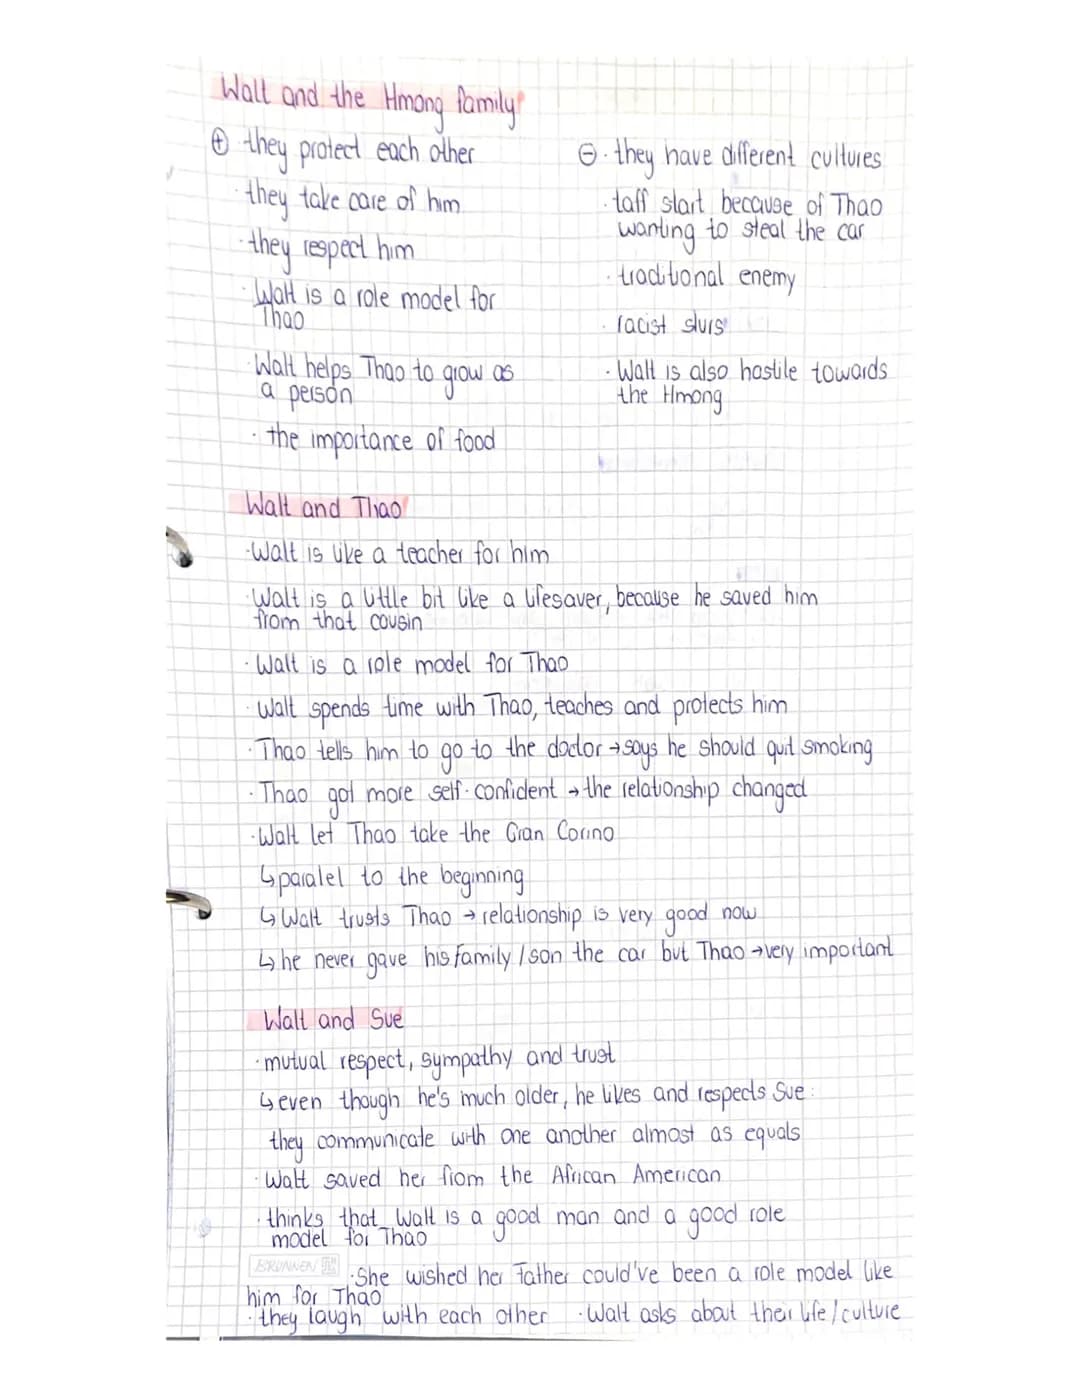 Walt and the Hmong family
⊕ · they protect each other
· they take care of him
· they respect him
· Walt is a role model for
Thao
· Walt helps Thao to grow as
a person
· the importance of food
⊖ · they have different cultures
· taff start because of Thao
wanting to steal the car
· traditional enemy
· racist slurs
· Walt is also hostile towards
the Hmong
Walt and Thao
· Walt is like a teacher for him
· Walt is a little bit like a lifesaver, because he saved him
from that cousin
· Walt is a role model for Thao
· Walt spends time with Thao, teaches and protects him
· Thao tells him to go to the doctor → says he should quit smoking
· Thao got more self-confident → the relationship changed
· Walt let Thao take the Gran Corino
↳ paralel to the beginning
↳ Walt trusts Thao → relationship is very good now
↳ he never gave his family/son the car but Thao → very important
Walt and Sue
· mutual respect, sympathy and trust
↳ even though he's much older, he likes and respects Sue:
they communicate with one another almost as equals
· Walt saved her from the African American
· thinks that Walt is a good man and a good role
model for Thao
BRUNNEN
· She wished her Father could've been a role model like
him for Thao
· they laugh with each other · Walt asks about their life/culture